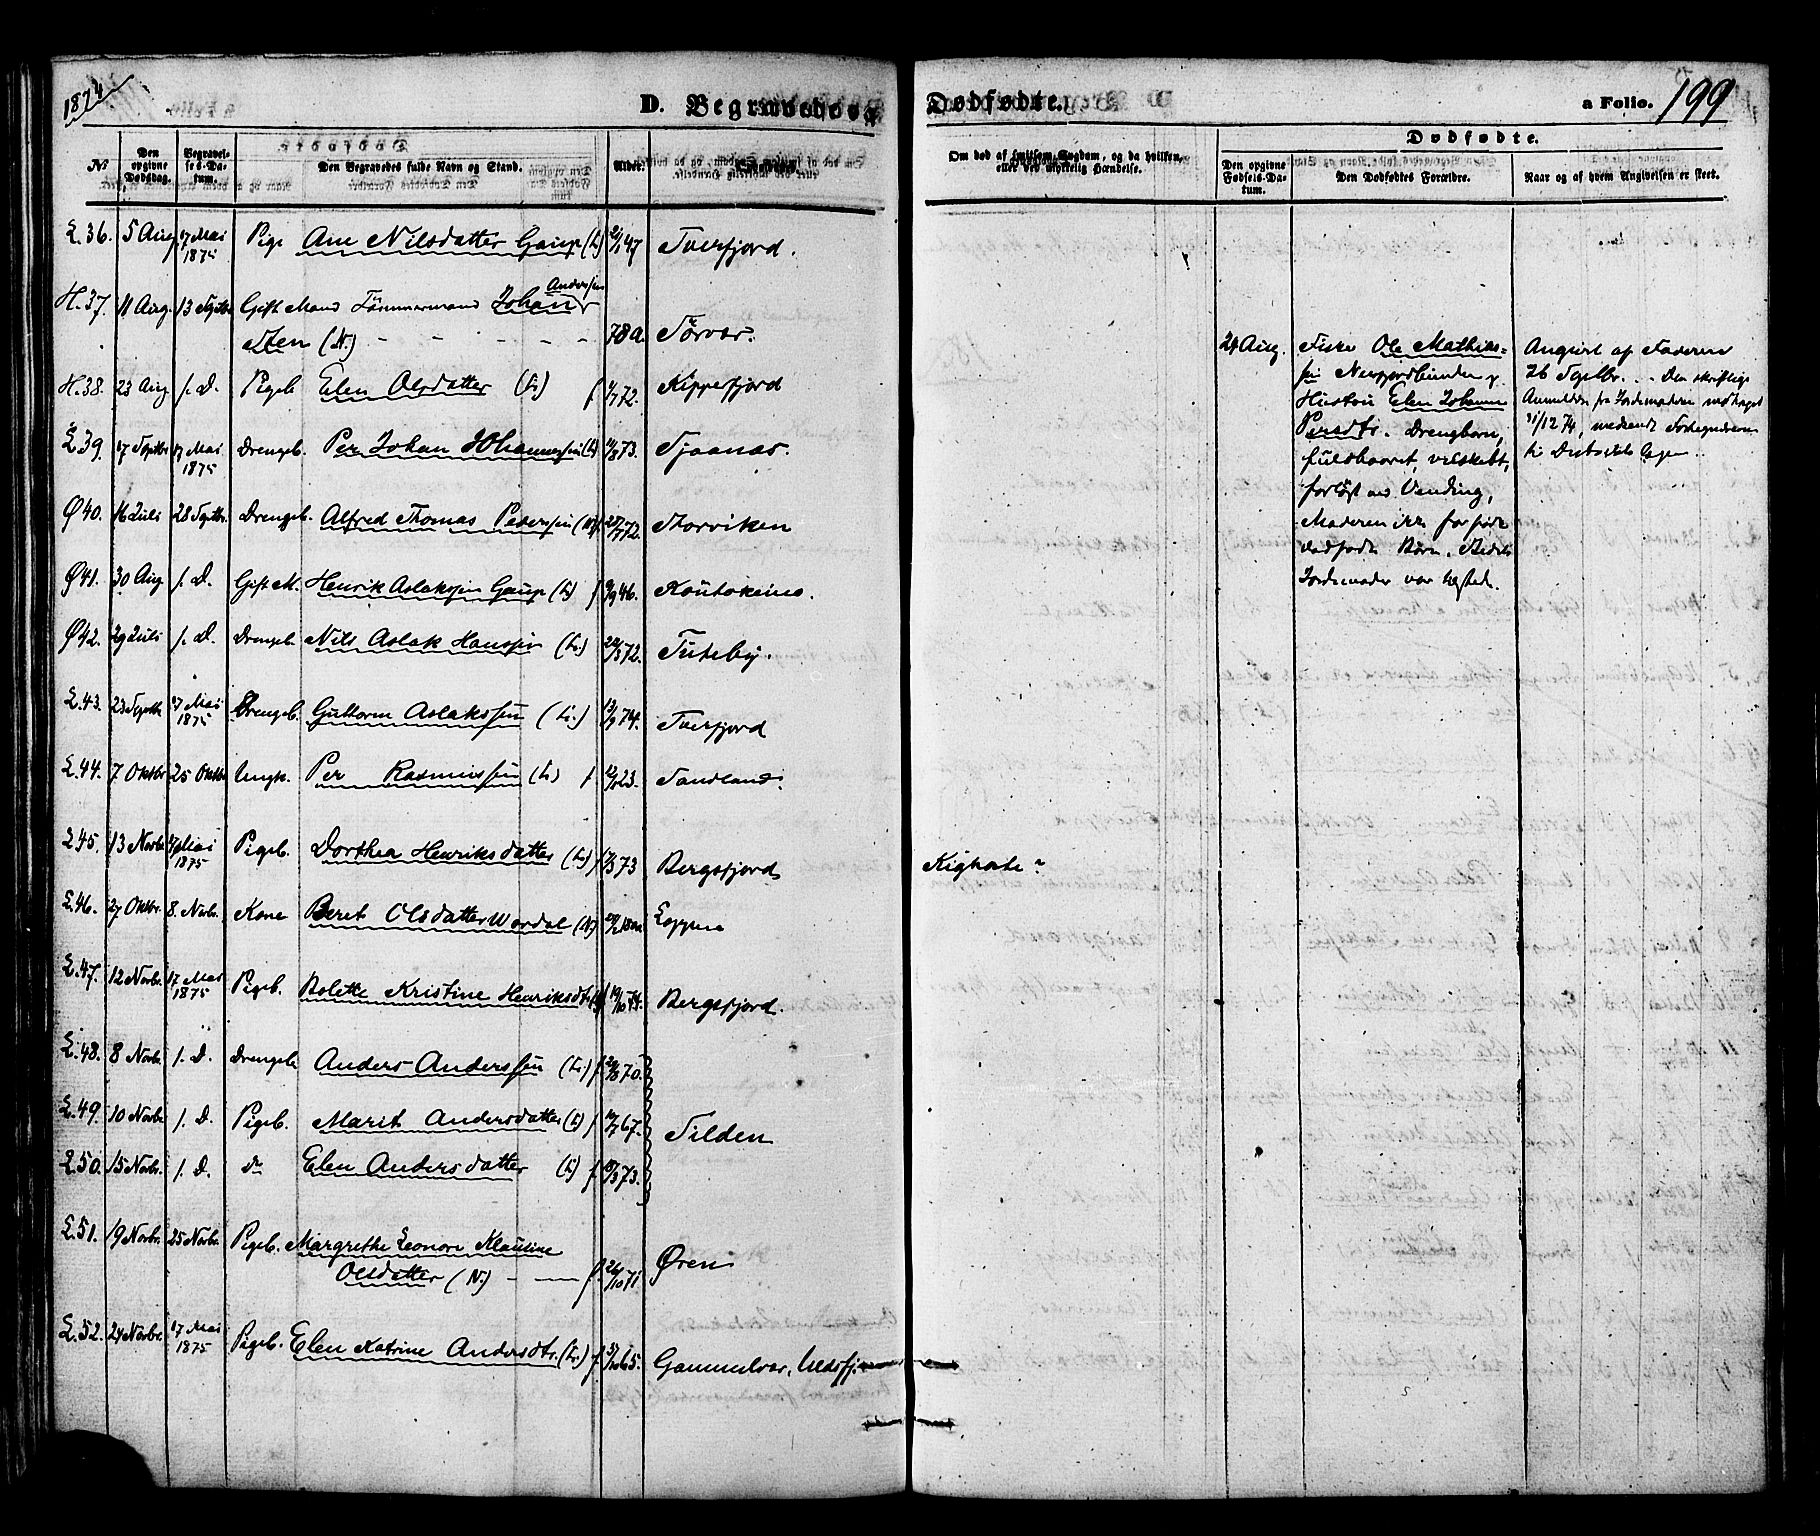 1874
D. Begravede og
Dødfødte.
a Folio. 199
No
Den opgivne Dødsdag.
Begravelses-Datum.
Den Begravedes fulde Navn og Stand.
Alder.
Om død af smitsom Sygdom, og da hvilken, eller ved ulykkelig Hændelse.
Dødfødte.
Den opgivne Fødsels-Datum.
Den Dødfødtes Forældre.
Naar og af hvem Angivelsen er skeet.
L. 36. 5 Aug. 17 Mai 1875 Pige Ane Nilsdatter Gaup (L) 47 Tverfjord.
H. 37. 11 Aug. 13 Septbr. Gift Mand Tømmermand Johan Anderssen
Sten (N.) - - - - - 78 a. Sørvær.
H. 38. 23 Aug. s. D. Pigeb. Elen Olsdatter (L.) f 72. Kipperfjord
L. 39. 17 Septbr. 17 Mai 1875 Drengeb. Per Johan Johannessen (L) 73. Sjaanæs.
Ø 40. 16 Juli 28 Septbr. Drengeb. Alfred Thomas Pedersen (N) 72. Storviken
Ø 41. 30 Aug. s. D. Gift M. Henrik Aslaksen Gaup (L) f 46. Koutokeino.
Ø 42. 29 Juli s. D. Drengeb. Nils Aslak Hanssen (L.) 72. Tuteby.
L. 43. 23 Septbr. 17 Mai 1875 Drengeb. Guttorm Aslakssen (L.) 74. Tverfjord
L. 44. 7 Oktbr. 25 Oktbr. Ungk. Per Rasmussen (L) f 23. Sandland.
L. 45. 13 Novbr. 17 Mai 1875 Pigeb. Dorthea Henriksdatter (L) 73 Bergsfjord Kighoste?
L. 46. 27 Oktbr. 8. Novbr. Kone Beret Olsdatter Wordal (N) Loppen
L. 47. 12 Novbr. 17 Mai 1875 Pigeb. Bolette Kristine Henriksdtr. 19/10 74. Bergsfjord.
L. 48. 8 Novbr. s. D. Drengeb. Anders Anderssen (L.) f 70.
L. 49. 10 Novbr. s. D. Pigeb. Marit Andersdatter (L) f 67. Silden
L. 50. 15 Novbr. s. D. do Elen Andersdatter (L) f 73.
L. 51. 19 Novbr. 25 Novbr. Pigeb. Margrethe Leonore Klausine
Olsdatter (N.) - - f. 26/10 71. Øren
L. 52. 24 Novbr. 17 Mai 1875 Pigeb. Elen Katrine Andersdtr. (L.) f 65. Gammelvær, Ulsfj.
24 Aug.
Fisker Ole Mathis-
sen Nuvfjordbunden og
Hustru Elen Johanne
Persdtr. Drengbarn,
fuldbaaret, velskabt,
forløst ved Vending,
Moderen ikke før født
dødfødte Børn.
Jordemoder var tilstede.
Angivet af Faderen
26 Septbr. . . Den skriftlige
Anmeldelse fra Jordemoderen modtaget
31/12 74, medsendt Fortegnelsen